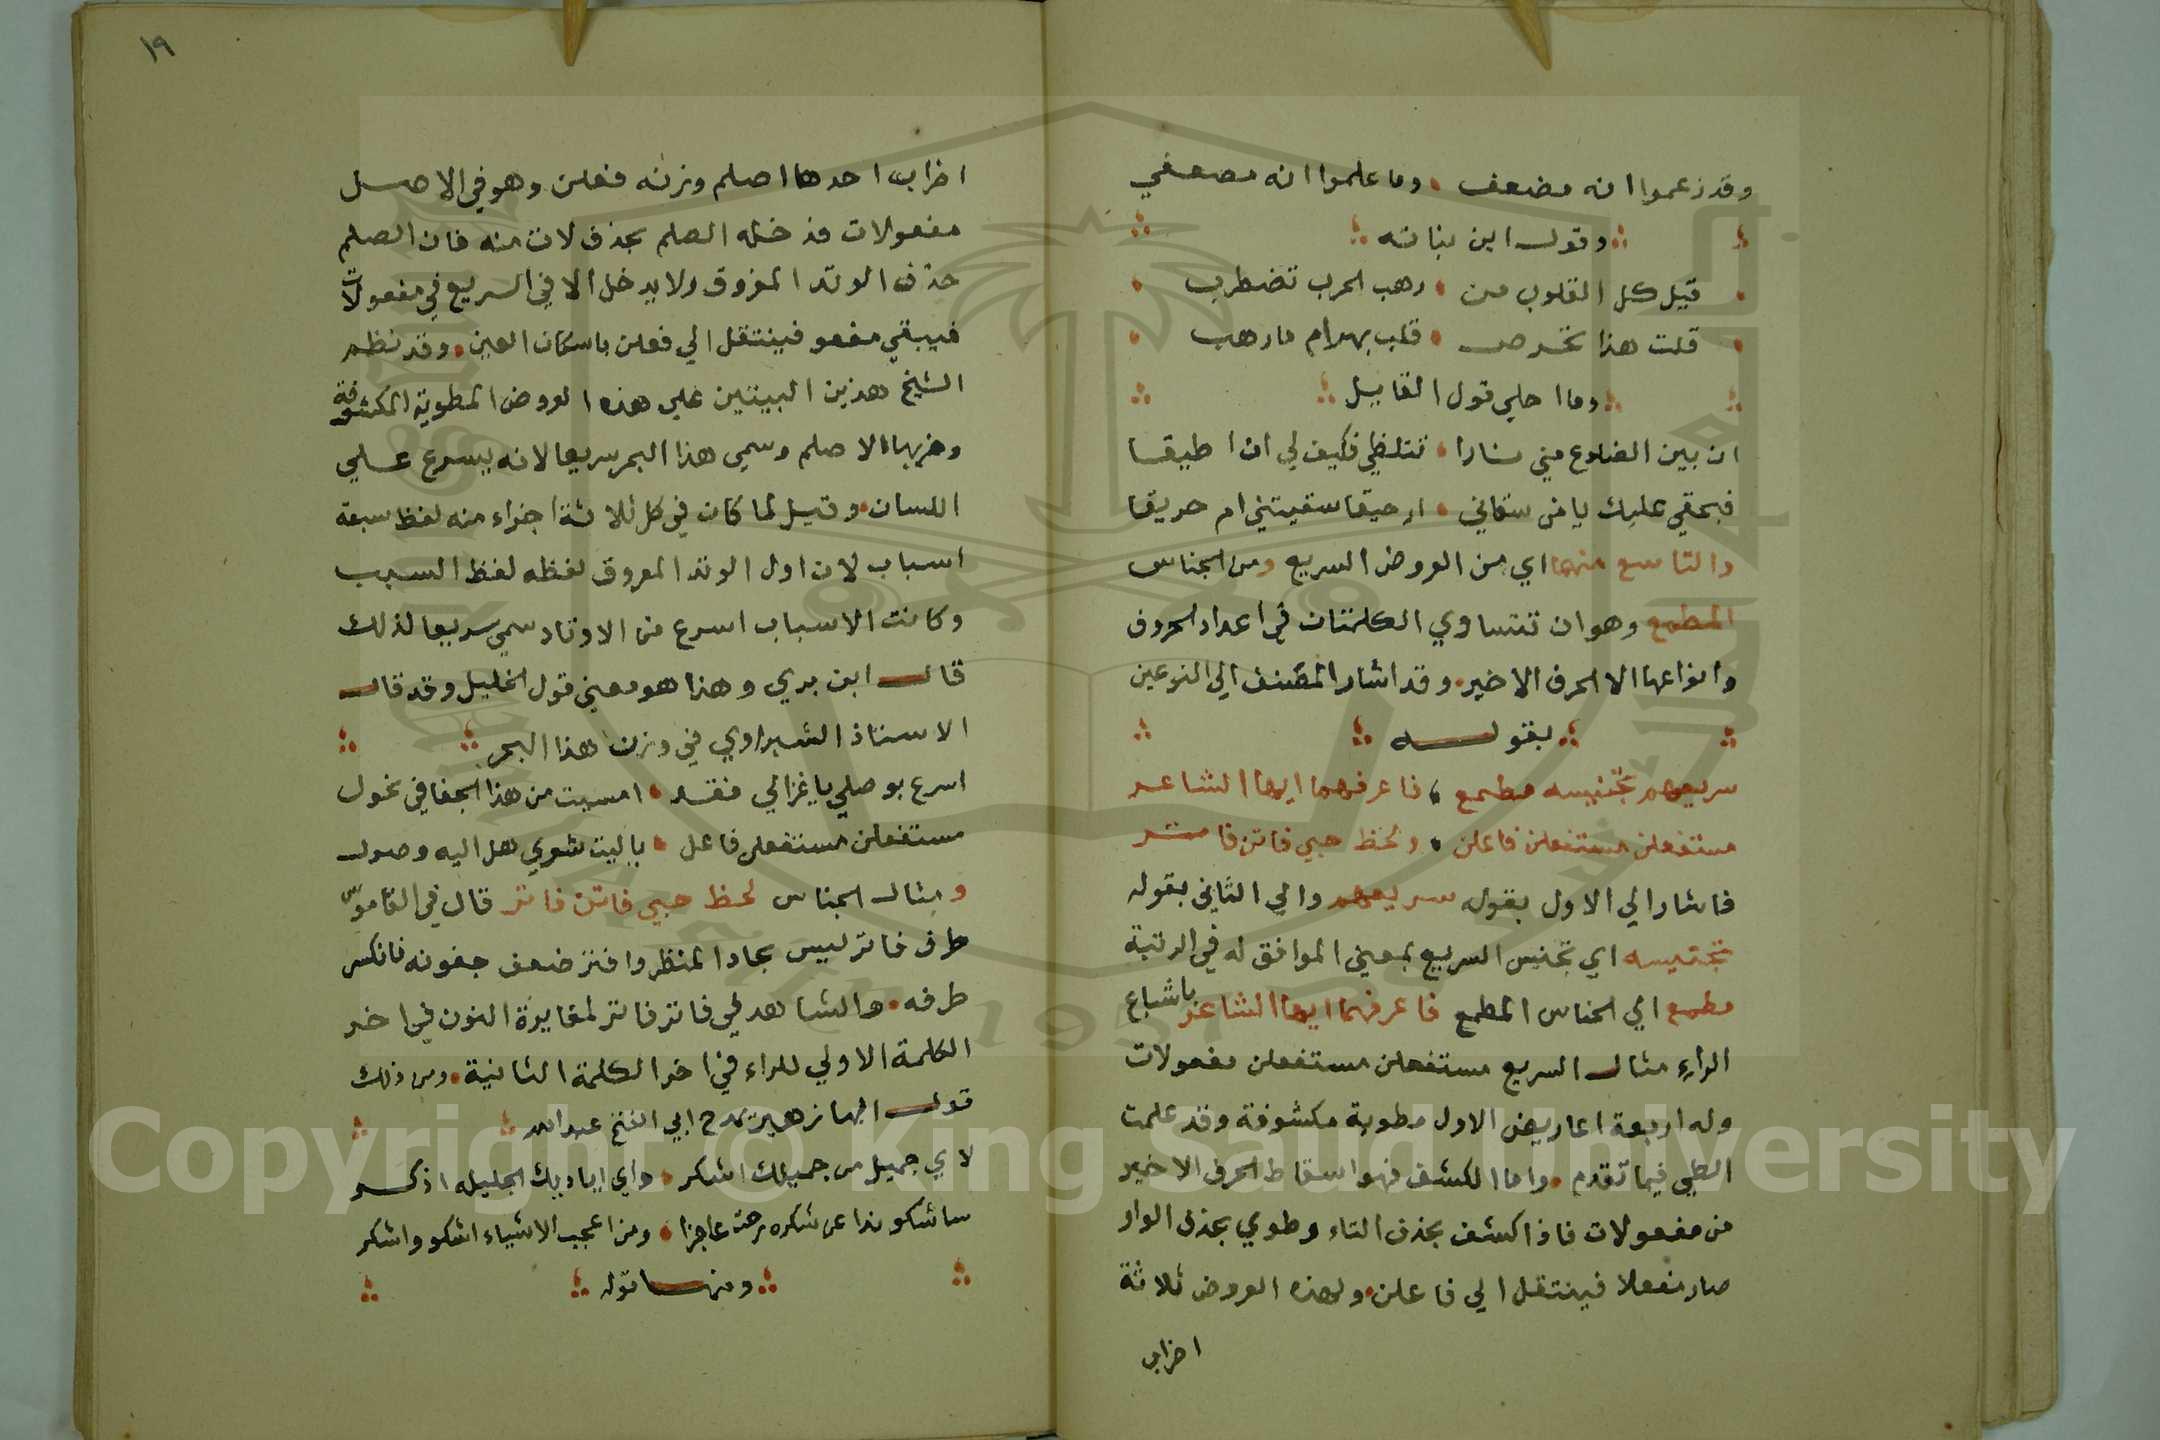 وقد زعموا انه مضعف وما علموا انه مصعفي
وقول ابن نباته
قيل كل القلوب من رهب الحرب تضطرب
قلت هذا تخرص قلب بهرام ما رهب
وما احلي قول القايل
ان بين الضلوع مني نارا تتلظي فكيف لي ان اطيقا
فبحقي عليك يا من سقاني ارحيقا سقيتني ام حريقا
والتاسع منهما اي من العروض السريع ومن الجناس
المطمع وهو ان تتساوي الكلمتان في اعداد الحروف
وانواعها الا الحرف الاخير وقد اشار المصنف الي النوعين
بقوله
سريعهم تجنيسه مطمع فاعرفهما ايها الشاعر
مستفعلن مستفعلن فاعلن ولحظ حبي فاتن فاتر
فاشار الي الاول بقوله سريعهم والي الثاني بقوله
تجنيسه اي تجنيس السريع بمعني الموافق له في الرتبة
مطمع الي الجناس المطمع فاعرفهما ايها الشاعر باشباع
الراء مثال السريع مستفعلن مستفعلن مفعولات
وله اربعة اعاريض الاول مطوية مكشوفة وقد علمت
الطي فيما تقدم واما الكشف فهو اسقاط الحرف الاخير
من مفعولات فاذا كشف بحذف التاء وطوي بحذف الواو
صار مفعلا فينتقل الي فاعلن ولهذه العروض ثلاثة
اضراب
١٩
اضراب احدها اصلم وزنه فعلن وهو في الاصل
مفعولات فدخله الصلم بحذف لات منه فان الصلم
حذف الوتد المفروق ولا يدخل الا في السريع في مفعولات
فيبقي مفعو فينتقل الي فعلن باسكان العين وقد نظم
الشيخ هذين البيتين علي هذه العروض المطوية المكشوفة
وضربها الاصلم وسمي هذا البحر سريعا لانه يسرع علي
اللسان وقيل لما كان في كل ثلاثة اجزاء منه لفظ سبعة
اسباب لان اول الوتد المفروق لفظه لفظ السبب
وكانت الاسباب اسرع من الاوتاد سمي سريعا لذلك
قال ابن بري وهذا هو معني قول الخليل وقد قال
الاستاذ الشبراوي في وزن هذا البحر
اسرع بوصلي يا غزالي فقد امسيت من هذا الجفا في نحول
مستفعلن مستفعلن فاعل ياليت شعري هل اليه وصول
ومثال الجناس لحظ حبي فاتن فاتر قال في القاموس
طرف فاتر ليس بحاد النظر وافتر ضعف جفونه فانكسر
طرفه والشاهد في فاتن فاتر لمغايرة النون في اخر
الكلمة الاولي للراء في اخر الكلمة الثانية ومن ذلك
قول البها زهير يمدح ابي الفتح عبد الله
لاي جميل من جميلك اشكر واي اياديك الجليله اذكر
ساشكو ندا عن شكره رحت عاجزا ومن اعجب الاشياء اشكو واشكر
ومنها قوله
Copyright © King Saud University